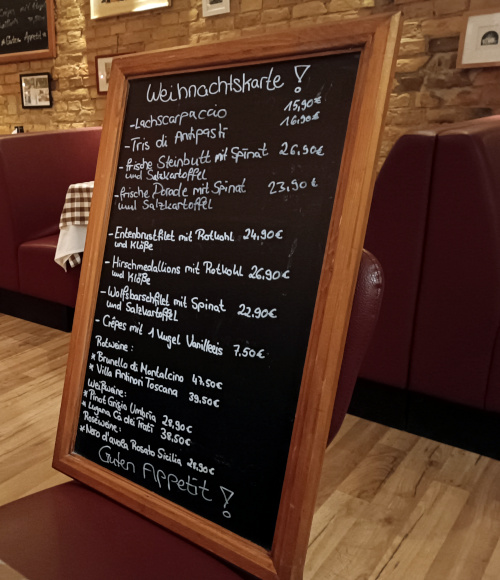 Weihnachtskarte!
-Lachscarpaccio 15,90€
-Tris di Antipasti 16,90€
-frische Steinbutt mit Spinat 26,90€
und Salzkartoffel
-frische Dorade mit Spinat 23,90€
und Salzkartoffel
-Entenbrustfilet mit Rotkohl 24,90€
und Klöße
-Hirschmedallions mit Rotkohl 26,90€
und Klöße
-Wolfsbarschfilet mit Spinat 22,90€
und Salzkartoffel
-Crêpes mit 1 Kugel Vanilleeis 7.50€
Rotweine:
*Brunello di Montalcino 47.50€
*Villa Antinori Toscana 39.50€
Weißweine:
*Pinot Grigio Umbria 28,90€
*Lugana Cà dei Frati 38,50€
Roséweine:
*Nero d'avola Rosato Sicilia 28,90€
Guten Appetit!
Guten Appetit!